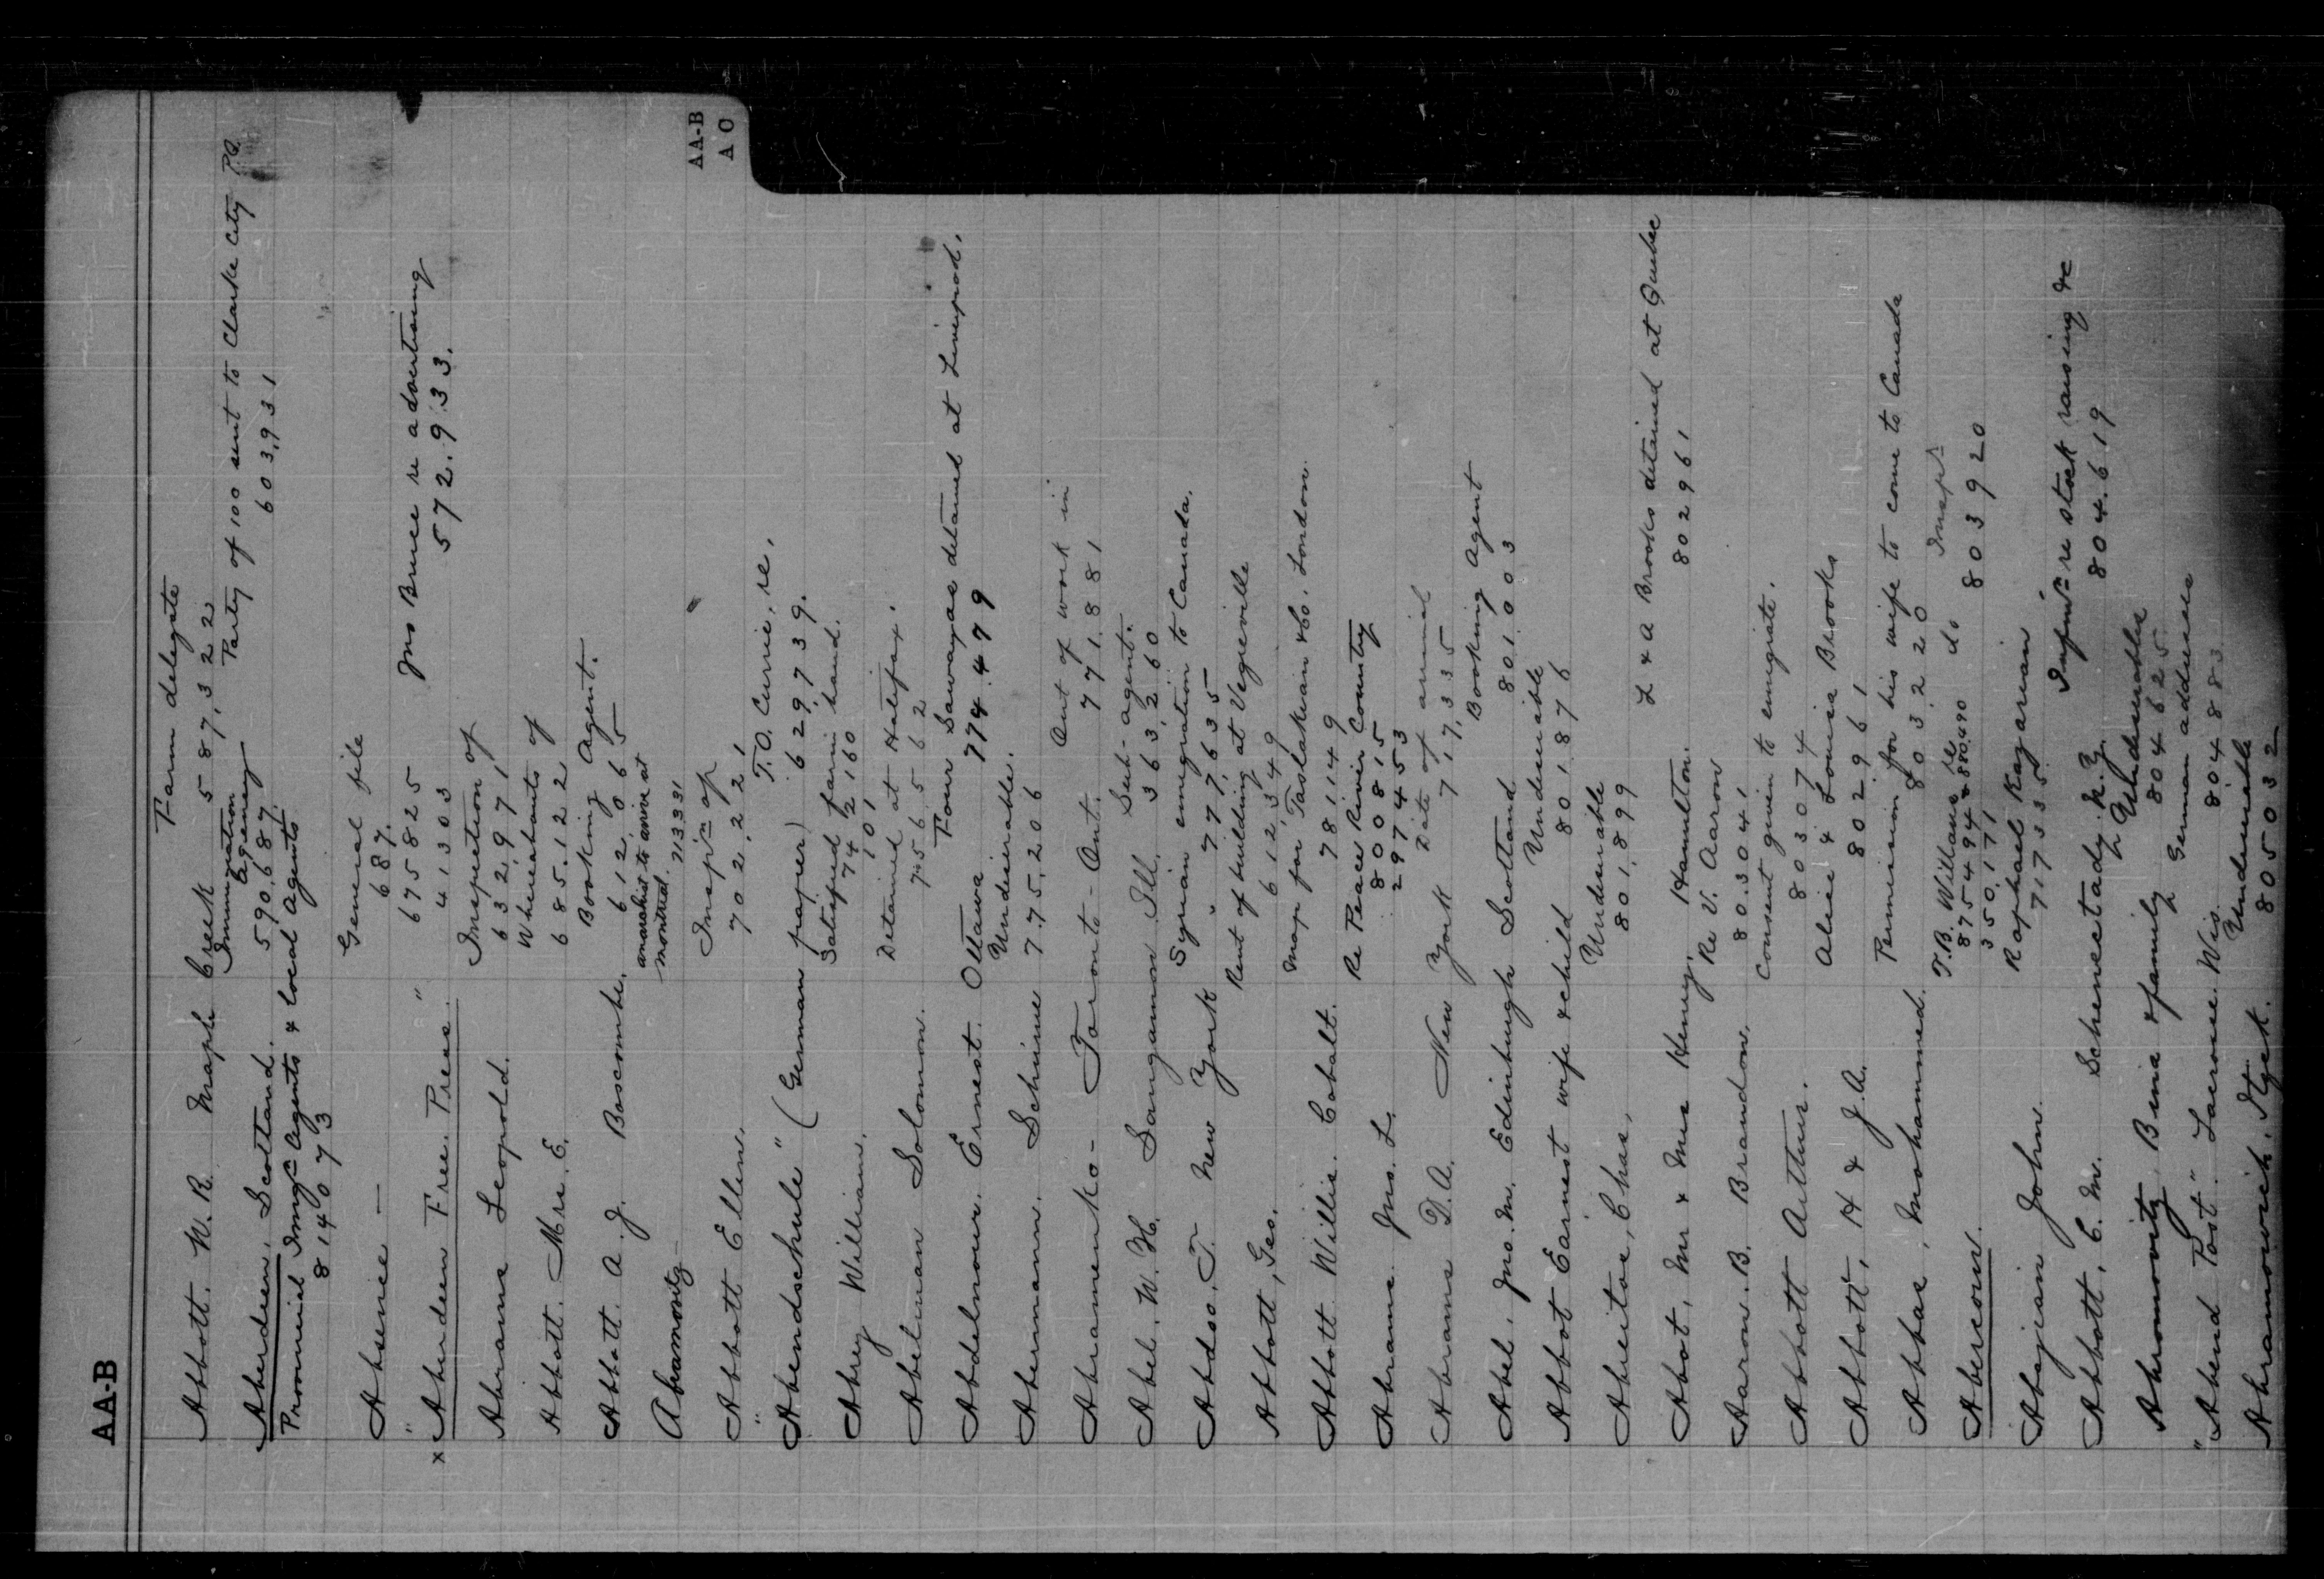 AA-B
AA-B
A O
Abbott. W. R. Maple Creek Farm delegate
587,322
Aberdeen, Scotland. Immigration Agency
590,687.
Party of 100 sent to Clarke City P.Q.
603,931
Provincial Immgn Agents & local Agents
814073
Absence — General file
687.
675825
41303
x "Aberdeen Free Press"
Jno Bruce re advertising
572.933.
Abrams Leopold. Inspection of
632,971
Abbott. Mrs. E. Whereabouts of
685.122
Abbott A. J. Boscombe. Booking Agent.
612,065
Abramovitz anarchist to arrive at
montreal. 713331
Abbott Ellen. Insp'n of
702,221
"Abendschule" (German paper) T.O. Currie, re.
629,739.
Abrey William. Satisfied farm hand.
742160
101
Abelman Solomon. Detained at Halifax.
756562
Abdelnour. Ernest. Ottawa Four Sawayas detained at Liverpool.
774.479
Abermann. Schime Undesirable.
775.206
Abramenko - Toronto - Ont. Out of work in
771.881
Abel. W. H. Sangamon Ill. Sub-agent.
363,260
Abdoo, T. New York Syrian emigration to Canada.
" 777,635
Abbott, Geo. Rent of building at Vegreville
612,349
Abbott Willis. Cobalt. Map for Taslakian & Co. London.
781149
Abrams. Jno. L. Re Peace River Country
800815
297453
Abrams D.A. New York Date of arrival
717,335
Abel. Jno. M. Edinburgh Scotland Booking Agent
801.003
Abbot Earnest wife & child Undesirable
801876
Abreitos, Chas, Undesirable
801,899
Abbot, Mr & Mrs Henry. Hamilton. L & A Brooks detained at Quebec
802961
Aaron. B. Brandon. Re V. Aaron
80.3041
Abbott Arthur. Consent given to emigrate.
803074
Abbott, H & J.A. Alice & Louisa Brooks
802961
Abbas, Mohammed. Permission for his wife to come to Canada
803220
Abercorn. T.B. Willans re do Inspr
875494 & 880,490 803920
350,171
Abajian John. Raphael Kazarian
717335
Abbott, C. M. Schenectady. N.Y. Inform'n re stock raising &c
804.619
Abromovitz, Binia & family Undesirables
804625
"Abend Post" Lacrosse. Wis. German addresses
804883
Abramowich, Itzek. Undesirable
805032